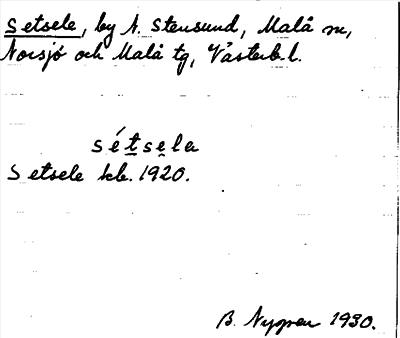 Setsele, by N. Stensund, Malå sn,
Norsjö och Malå tg, Västerb. l.
sét̲se̲la
Setsele kb. 1920.
B. Nygren 1930.